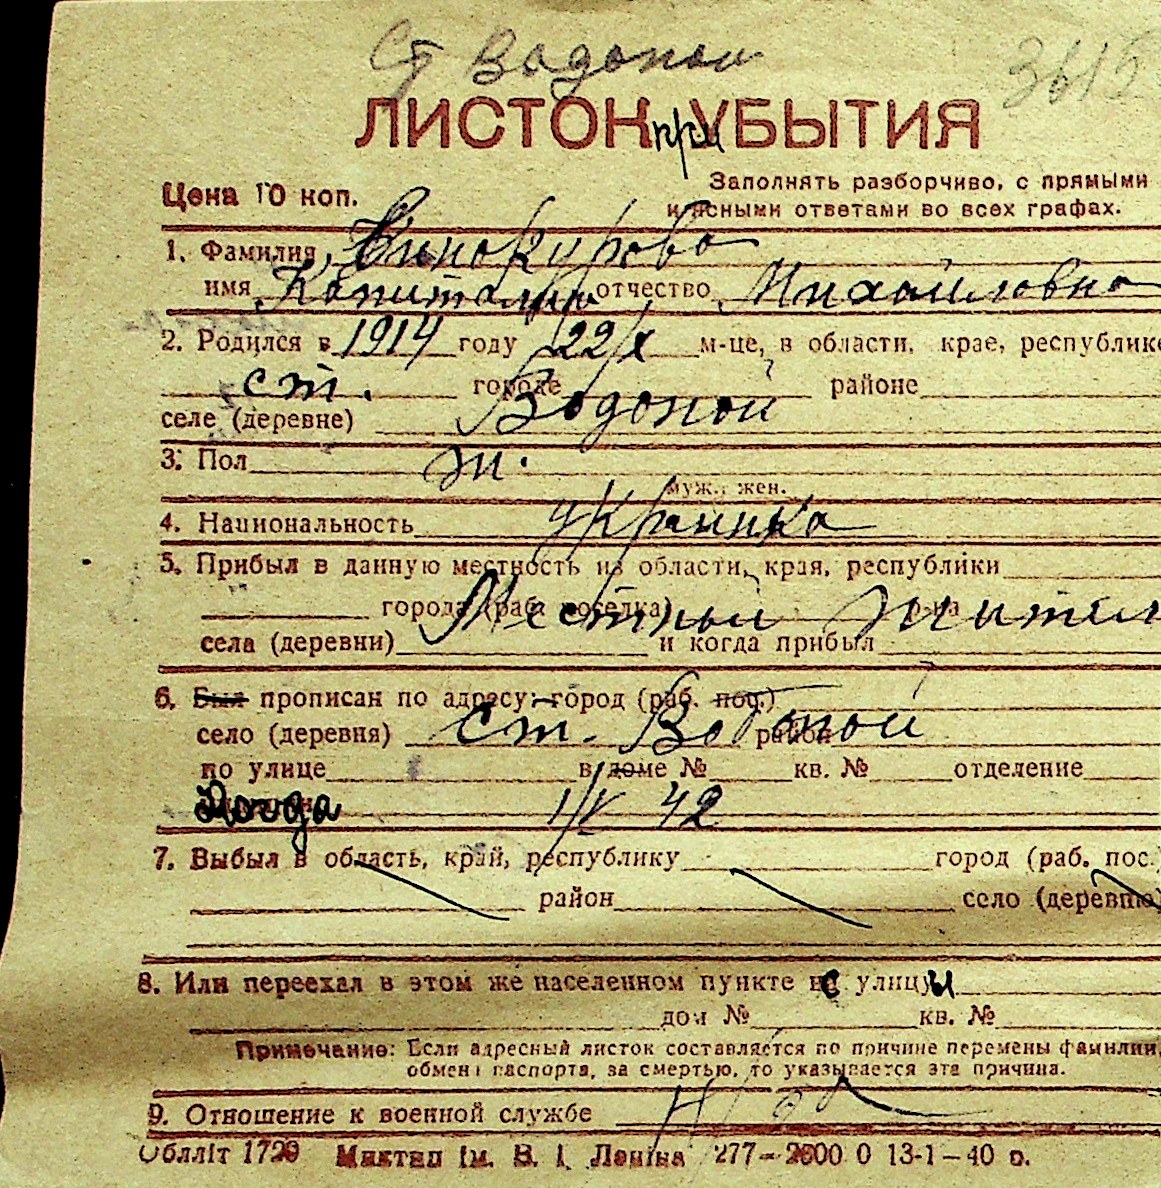 Ст Водопой
3615
ЛИСТОК при УБЫТИЯ
Цена 10 коп.
Заполнять разборчиво, с прямыми
и ясными ответами во всех графах.
1. Фамилия Винокурова
имя Капиталина отчество Михайловна
2. Родился в 1914 году 22/X м-це, в области, крае, республике
ст. городе районе
селе (деревне) Водопой
3. Пол ж.
муж., жен.
4. Национальность украинка
5. Прибыл в данную местность из области, края, республики
города (раб. поселка) Местный р-на жител
села (деревни) и когда прибыл
6. Был прописан по адресу: город (раб. пос.)
село (деревня) ст. Водопой район
по улице в доме № кв. № отделение
Когда 1/V 42
7. Выбыл в область, край, республику город (раб. пос.)
район село (деревню)
8. Или переехал в этом же населенном пункте с улицы
дом № кв. №
Примечание: Если адресный листок составляется по причине перемены фамилии,
обмена паспорта, за смертью, то указывается эта причина.
9. Отношение к военной службе
Облліт 1729 Миктип Ім. В. І. Леніна 277-2000 0 13-1-40 р.